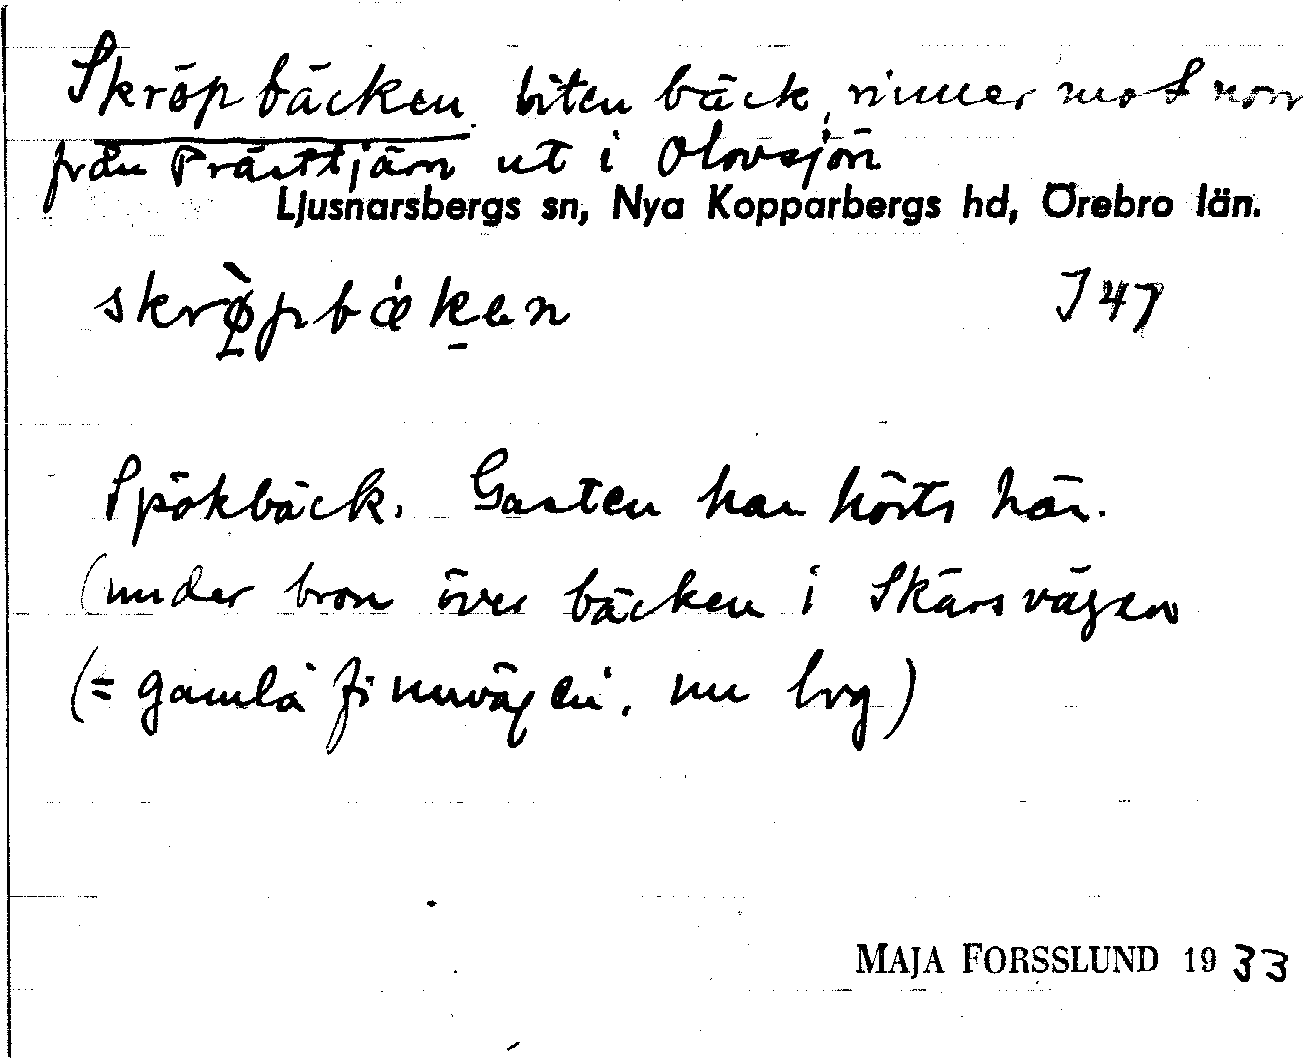 Skröpbäcken. liten bäck, rinner mot norr
från Prästtjärn ut i Olovsjön
Ljusnarsbergs sn, Nya Kopparbergs hd, Örebro län.
skrø̀pbæken J 47
Spökbäck. Gasten har hörts här.
(under bron över bäcken i Skärsvägen
(= gamla finnvägen, nu lvg)
MAJA FORSSLUND 1933